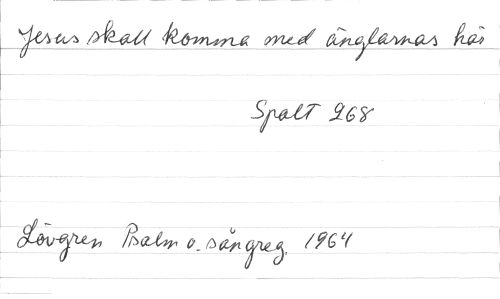 Jesus skall komma med änglarnas här
Spalt 268
Lövgren Psalm o. sångreg. 1964